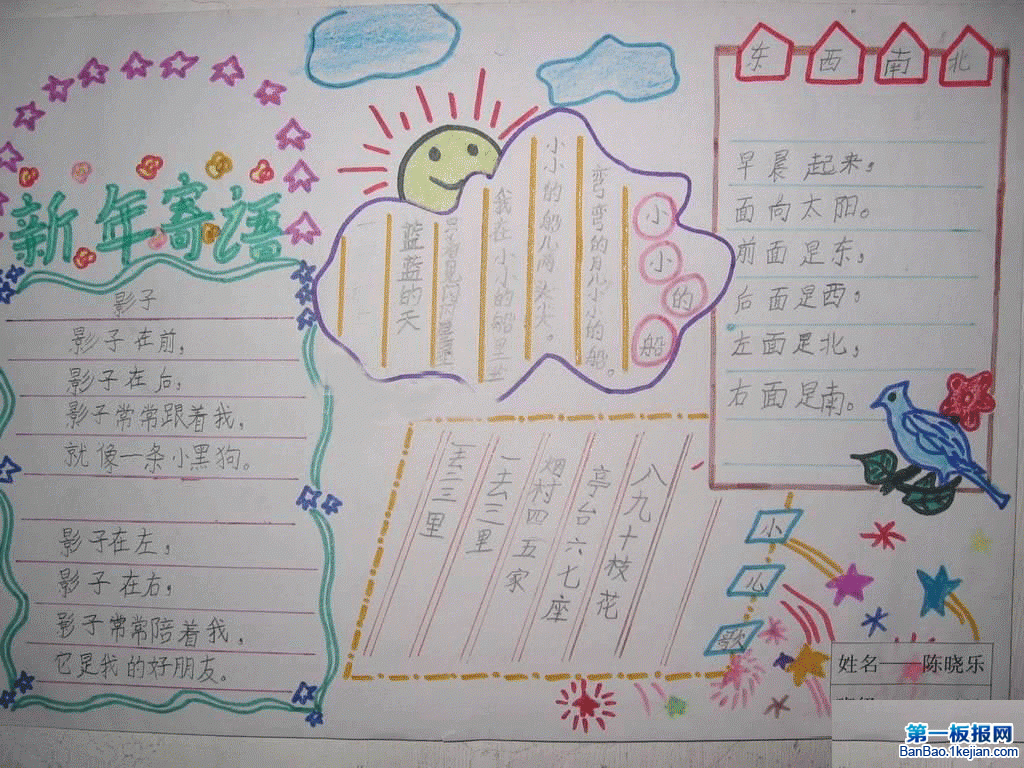 新年寄语
影子
影子在前,
影子在后;
影子常常跟着我,
就像一条小黑狗。
影子在左,
影子在右;
影子常常陪着我,
它是我的好朋友。
小小的船
弯弯的月儿小小的船。
小小的船儿两头尖。
我在小小的船里坐
只看见闪闪的星星
蓝蓝的天
东西南北
早晨起来;
面向太阳。
前面是东;
后面是西。
左面是北;
右面是南。
小儿歌
一去二三里
一去三里
烟村四五家
亭台六七座
八九十枝花
姓名——陈晓乐
第一板报网
BanBao.1kejian.com